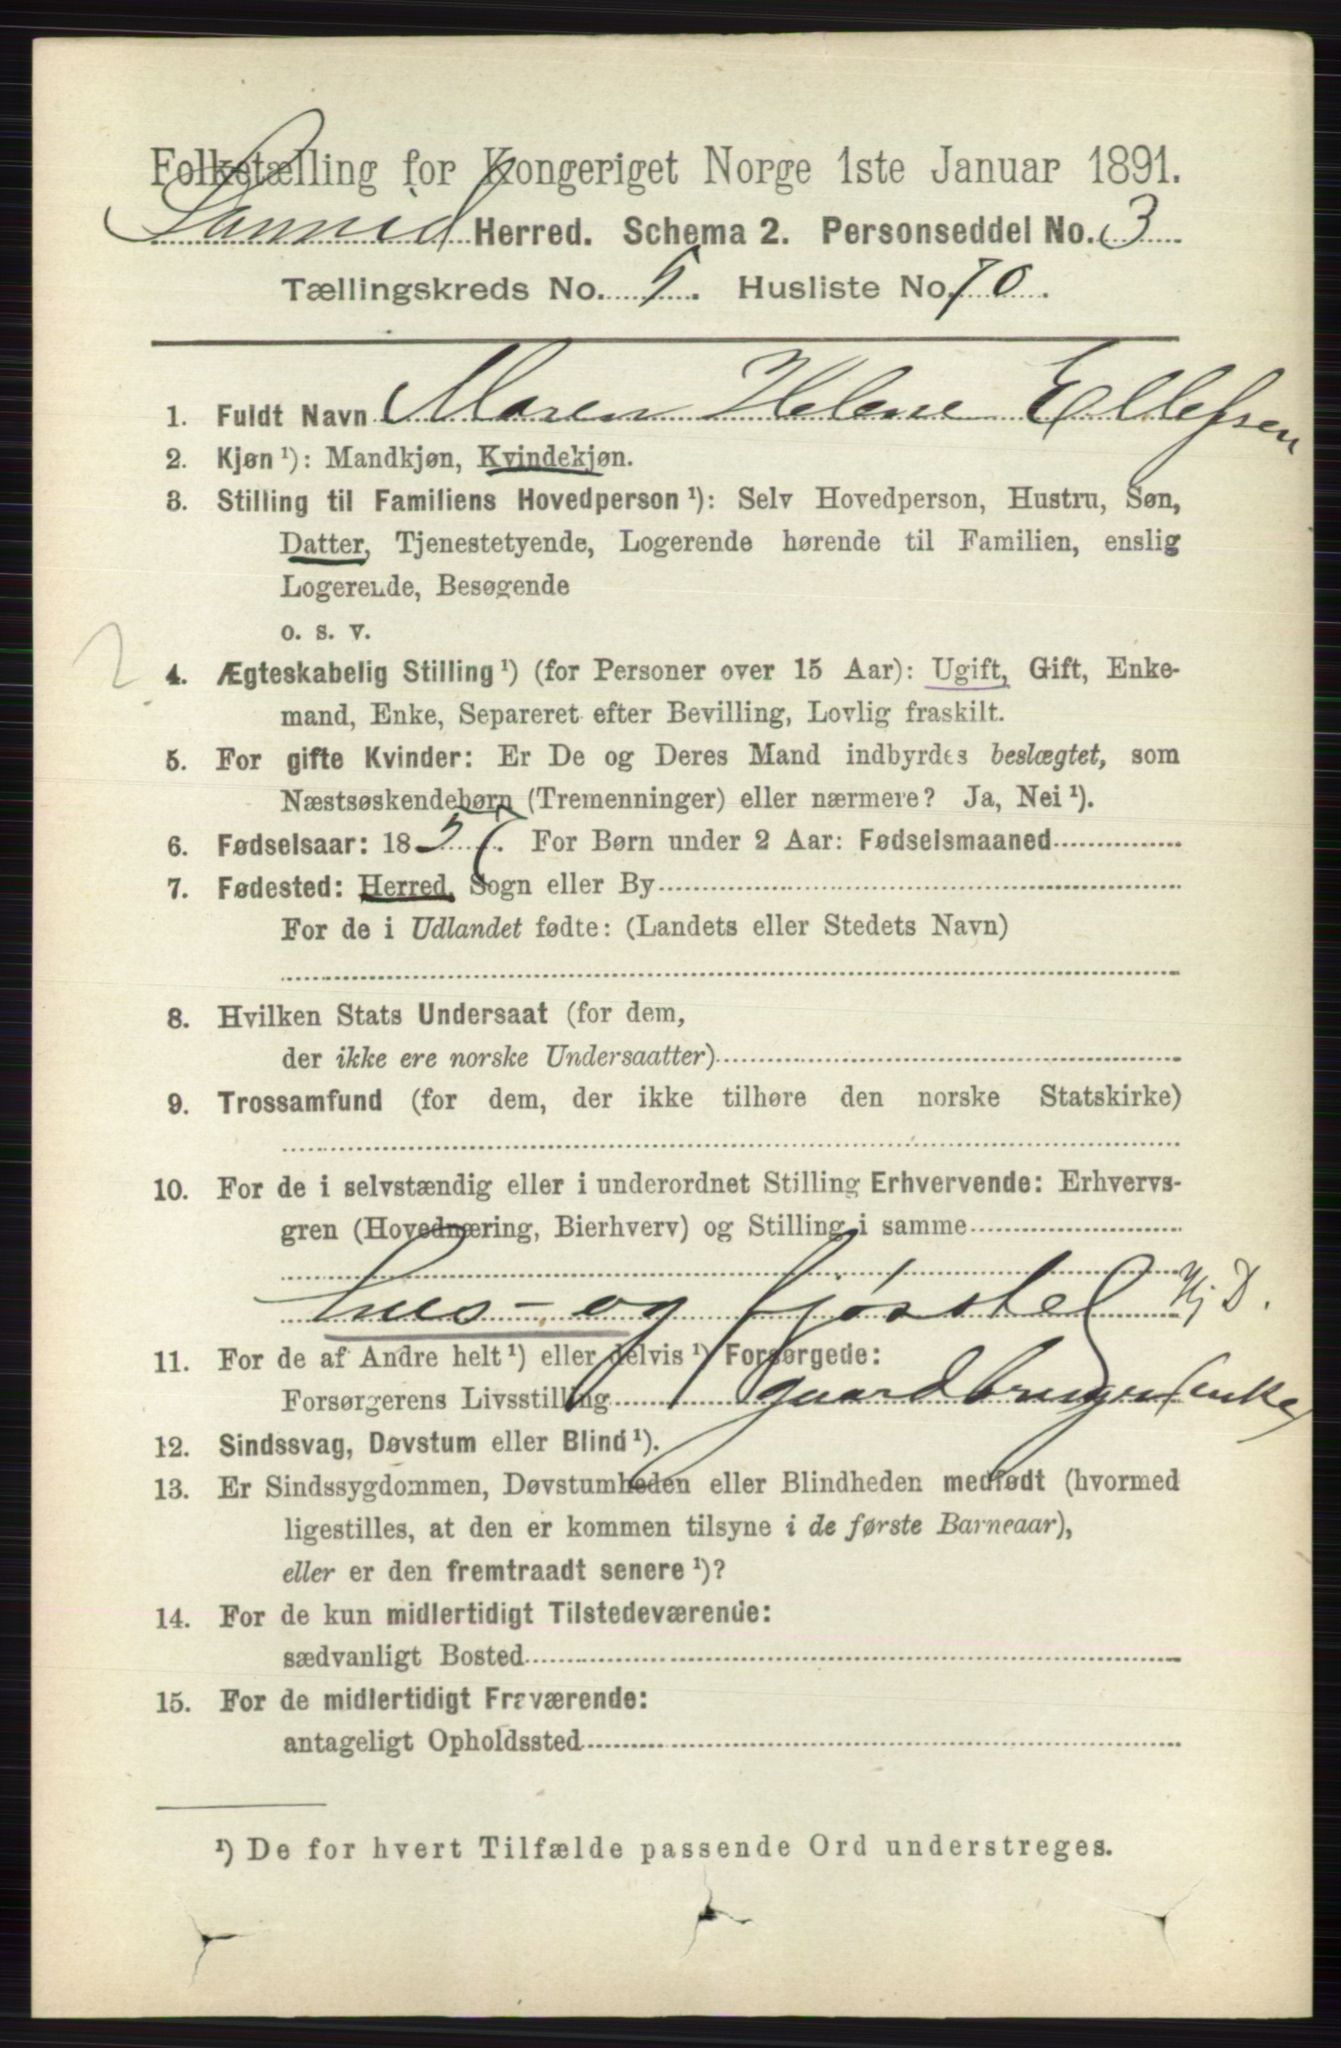 Folketælling for Kongeriget Norge 1ste Januar 1891.
Sannid Herred. Schema 2. Personseddel No. 3
Tællingskreds No. 5. Husliste No. 70.
1. Fuldt Navn Maren Helene Ellefsen
2. Kjøn ¹): Mandkjøn, Kvindekjøn.
3. Stilling til Familiens Hovedperson ¹): Selv Hovedperson, Hustru, Søn,
Datter, Tjenestetyende, Logerende hørende til Familien, enslig
Logerende, Besøgende
o. s. v.
2
4. Ægteskabelig Stilling ¹) (for Personer over 15 Aar): Ugift, Gift, Enke-
mand, Enke, Separeret efter Bevilling, Lovlig fraskilt.
5. For gifte Kvinder: Er De og Deres Mand indbyrdes beslægtet, som
Næstsøskendebørn (Tremenninger) eller nærmere? Ja, Nei ¹).
6. Fødselsaar: 1857. For Børn under 2 Aar: Fødselsmaaned
7. Fødested: Herred, Sogn eller By
For de i Udlandet fødte: (Landets eller Stedets Navn)
8. Hvilken Stats Undersaat (for dem,
der ikke ere norske Undersaatter)
9. Trossamfund (for dem, der ikke tilhøre den norske Statskirke)
10. For de i selvstændig eller i underordnet Stilling Erhvervende: Erhvervs-
gren (Hovednæring, Bierhverv) og Stilling i samme
hus- og fjøsstel Hj D.
11. For de af Andre helt ¹) eller delvis ¹) Forsørgede:
Forsørgerens Livsstilling gaardbruger enke
12. Sindssvag, Døvstum eller Blind ¹).
13. Er Sindssygdommen, Døvstumheden eller Blindheden medfødt (hvormed
ligestilles, at den er kommen tilsyne i de første Barneaar),
eller er den fremtraadt senere ¹)?
14. For de kun midlertidigt Tilstedeværende:
sædvanligt Bosted
15. For de midlertidigt Fraværende:
antageligt Opholdssted
¹) De for hvert Tilfælde passende Ord understreges.